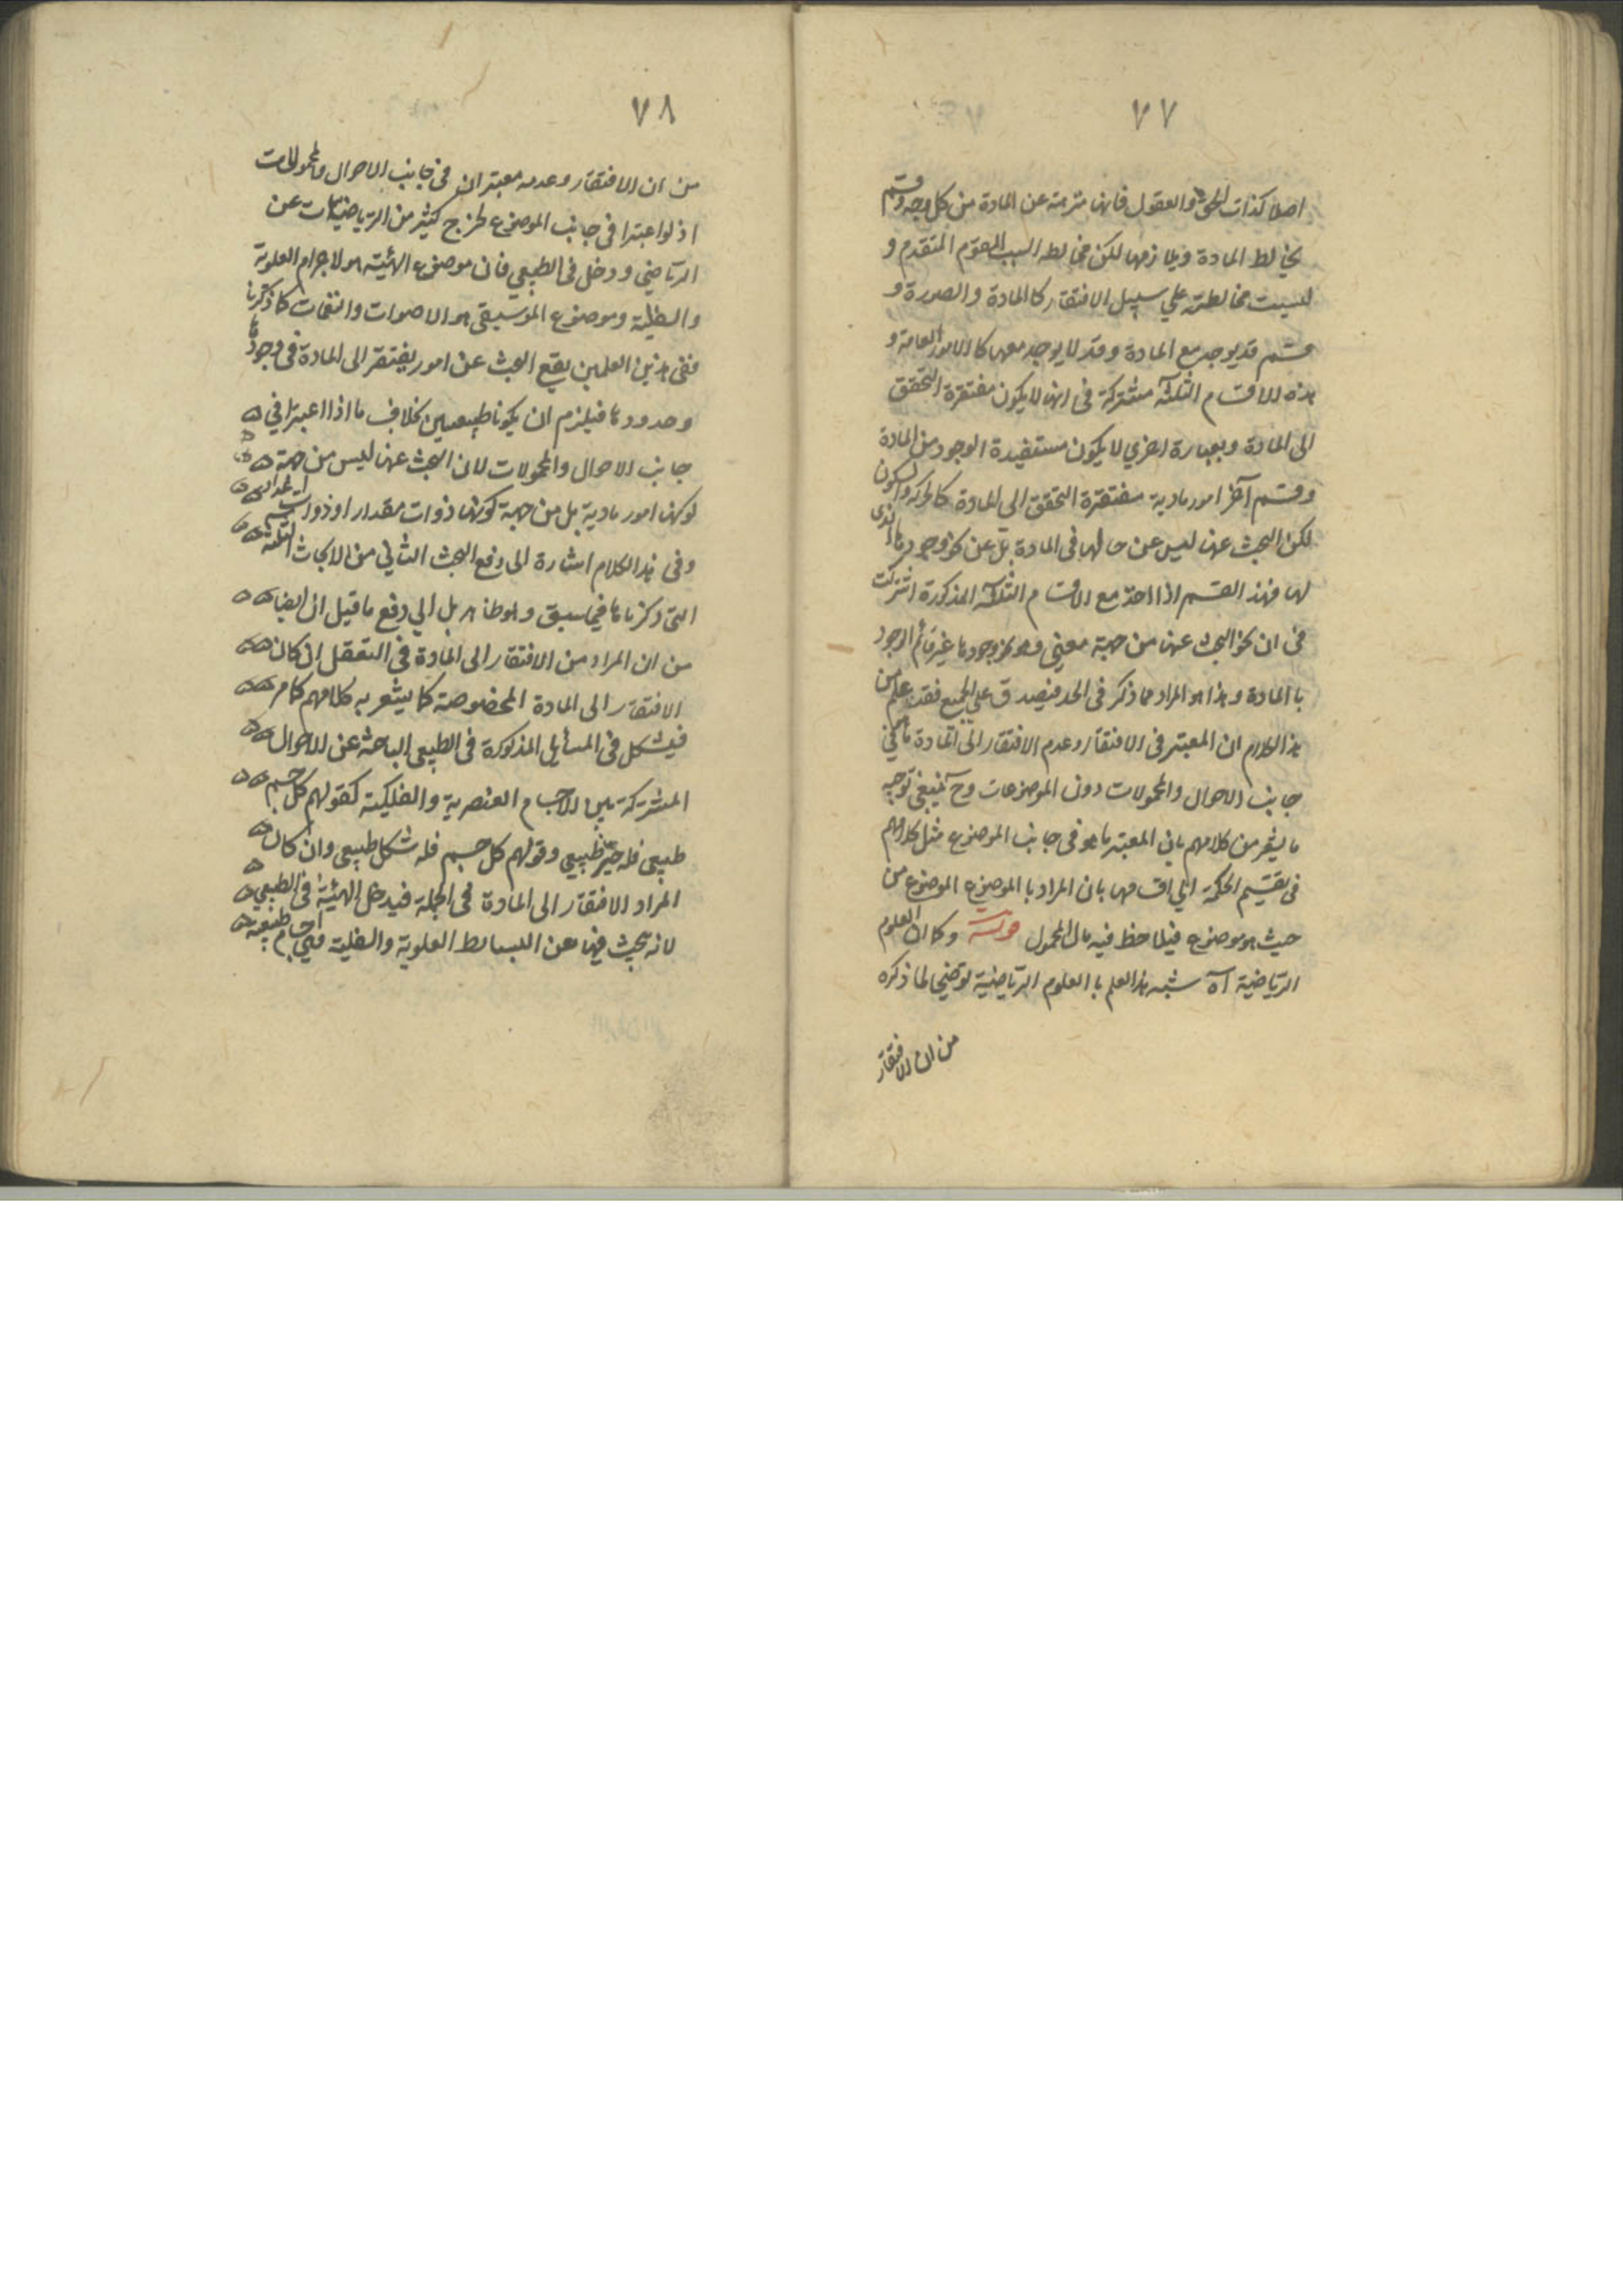 ٧٧
اصلا كذات الحق والعقول فانها منزهة عن المادة من كل وجه وقسم
يخالط المادة ويلازمها لكن مخالطه السبب المقوم المتقدم و
ليست مخالطته علي سبيل الافتقار كالمادة والصورة و
قسم قد يوجد مع المادة وقد لا يوجد معها كالامور العامة و
هذه الاقسام الثلثة مشتركة في انها لا يكون مفتقرة التحقق
الى المادة وبعبارة اخري لا يكون مستفيدة الوجود من المادة
وقسم آخر امور مادية مفتقرة التحقق الى المادة كالحركة والسكون
لكن البحث عنها ليس عن حالها في المادة بل عن نحو وجودها الذى
لها فهذا القسم اذا اخذ مع الاقسام الثلثة المذكورة اشتركت
في ان نحو البحث عنها من جهة معنى وهو نحو وجودها غير قائم الوجود
با المادة وهذا هو المراد مما ذكر في الحد فيصدق على الجميع فقد علم من
هذا الكلام ان المعتبر في الافتقار وعدم الافتقار الى المادة ما في
جانب الاحوال والمحمولات دون الموضوعات وح ينبغي توجيه
ما يشعر من كلامهم بان المعتبر ما هو في جانب الموضوع مثل كلامهم
في تقسيم الحكمة الي اقسامها بان المراد با الموضوع الموضوع من
حيث هو موضوع فيلاحظ فيه حال المحمول قوله وكما ان العلوم
الرياضية آه شبه هذا العلم با العلوم الرياضية توضيحا لما ذكره
من ان الافتقار
٧٨
من ان الافتقار وعدمه معتبران في جانب الاحوال والمحمولات
اذ لو اعتبرا في جانب الموضوع لخرج كثير من الرياضيات عن
الرياضي ودخل في الطبيعي فان موضوع الهيئة هو الاجرام العلوية
والسفلية وموضوع الموسيقى هو الاصوات والنغمات كما ذكرنا
ففي هذين العلمين يقع البحث عن امور يفتقر الى المادة في وجودها
وحدودها فيلزم ان يكونا طبيعيين بخلاف ما اذا اعتبرا في
جانب الاحوال والمحمولات لان البحث عنها ليس من جهة
كونها امور مادية بل من جهة كونها ذوات مقدار او ذوات عدد
وفي هذا الكلام اشارة الى دفع البحث الثاني من الابحاث الثلثة
التي ذكرناها فيما سبق وهو ظاهر بل الي دفع ما قيل ان ايضا
من ان المراد من الافتقار الى المادة في التعقل ان كان
الافتقار الى المادة المخصوصة كما يشعر به كلامهم كما مر
فيشكل في المسائل المذكورة في الطبيعي الباحثة عن الاحوال
المشتركة بين الاجسام العنصرية والفلكية كقولهم كل جسم
طبيعي فله حيز طبيعي وقولهم كل جسم فله شكل طبيعي وان كان
المراد الافتقار الى المادة في الجملة فيدخل الهيئة في الطبيعي
لانه يبحث فيها عن البسائط العلوية والسفلية وهي اجسام طبيعية